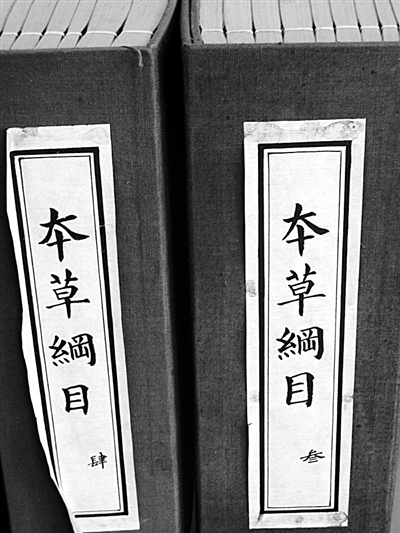 本草綱目
叁
本草綱目
肆